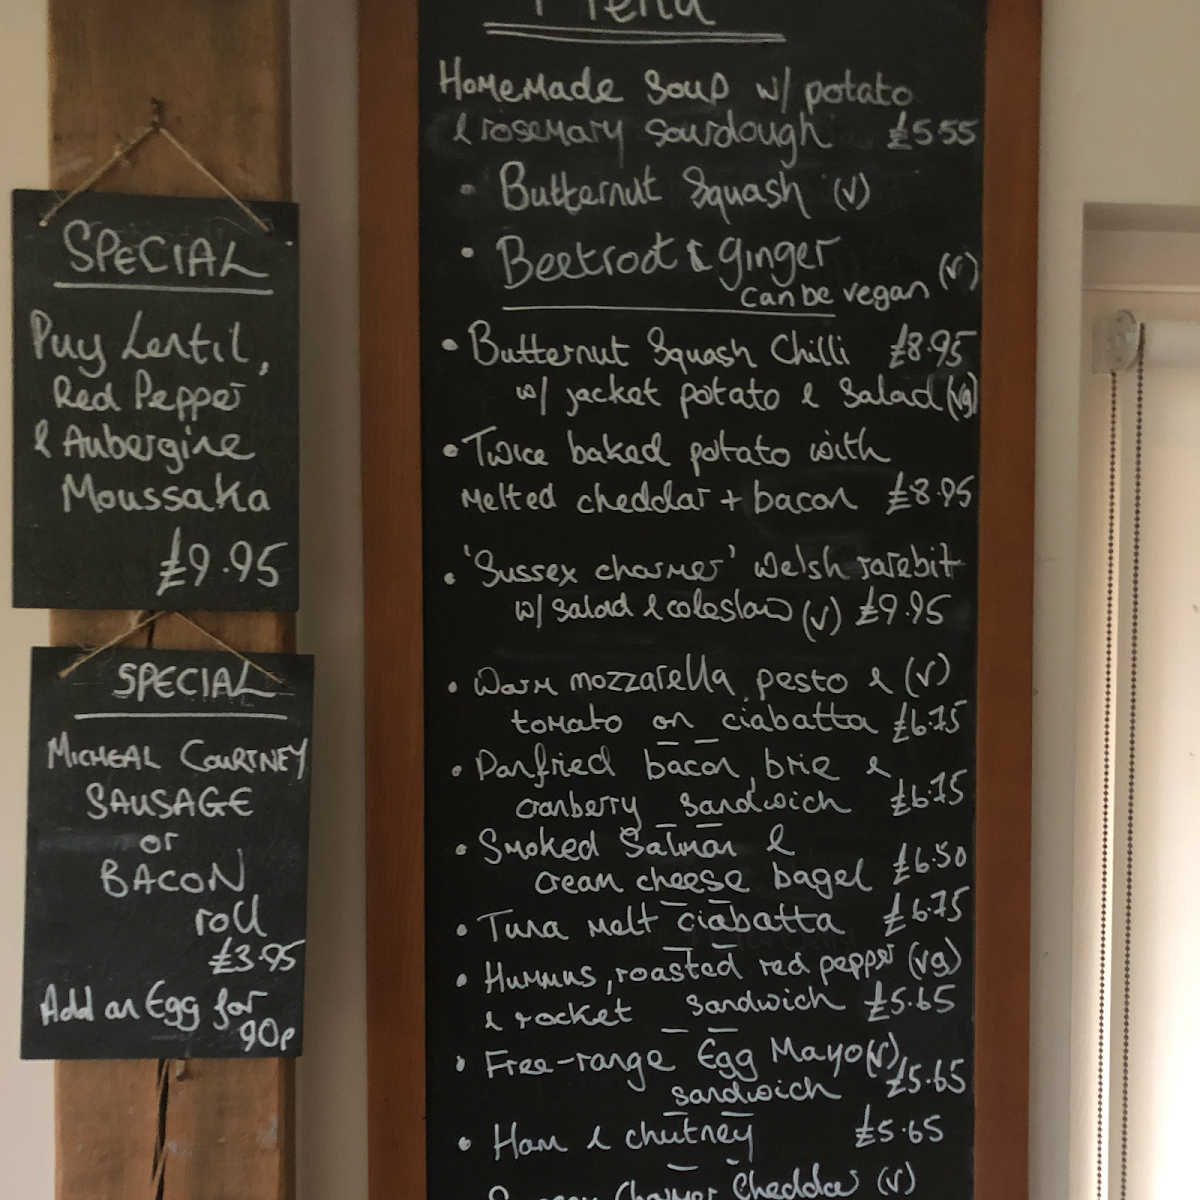 SPECIAL
Puy Lentil,
Red Pepper
& Aubergine
Moussaka
£9.95
SPECIAL
MICHEAL COURTNEY
SAUSAGE
or
BACON
roll
£3.95
Add an Egg for
90p
Menu
Homemade Soup w/ potato
& rosemary sourdough £5.55
• Butternut Squash (v)
• Beetroot & ginger (v)
can be vegan
• Butternut Squash Chilli £8.95
w/ jacket potato & Salad (vg)
• Twice baked potato with
melted cheddar + bacon £8.95
• 'Sussex charmer' Welsh rarebit
w/ salad & coleslaw (v) £9.95
• Warm mozzarella, pesto & (v)
tomato on ciabatta £6.75
• Panfried bacon, brie &
cranberry sandwich £6.75
• Smoked Salmon &
cream cheese bagel £6.50
• Tuna melt ciabatta £6.75
• Hummus, roasted red pepper (vg)
& rocket sandwich £5.65
• Free-range Egg Mayo (v)
sandwich £5.65
• Ham & chutney £5.65
Sussex Charmer Cheddar (v)